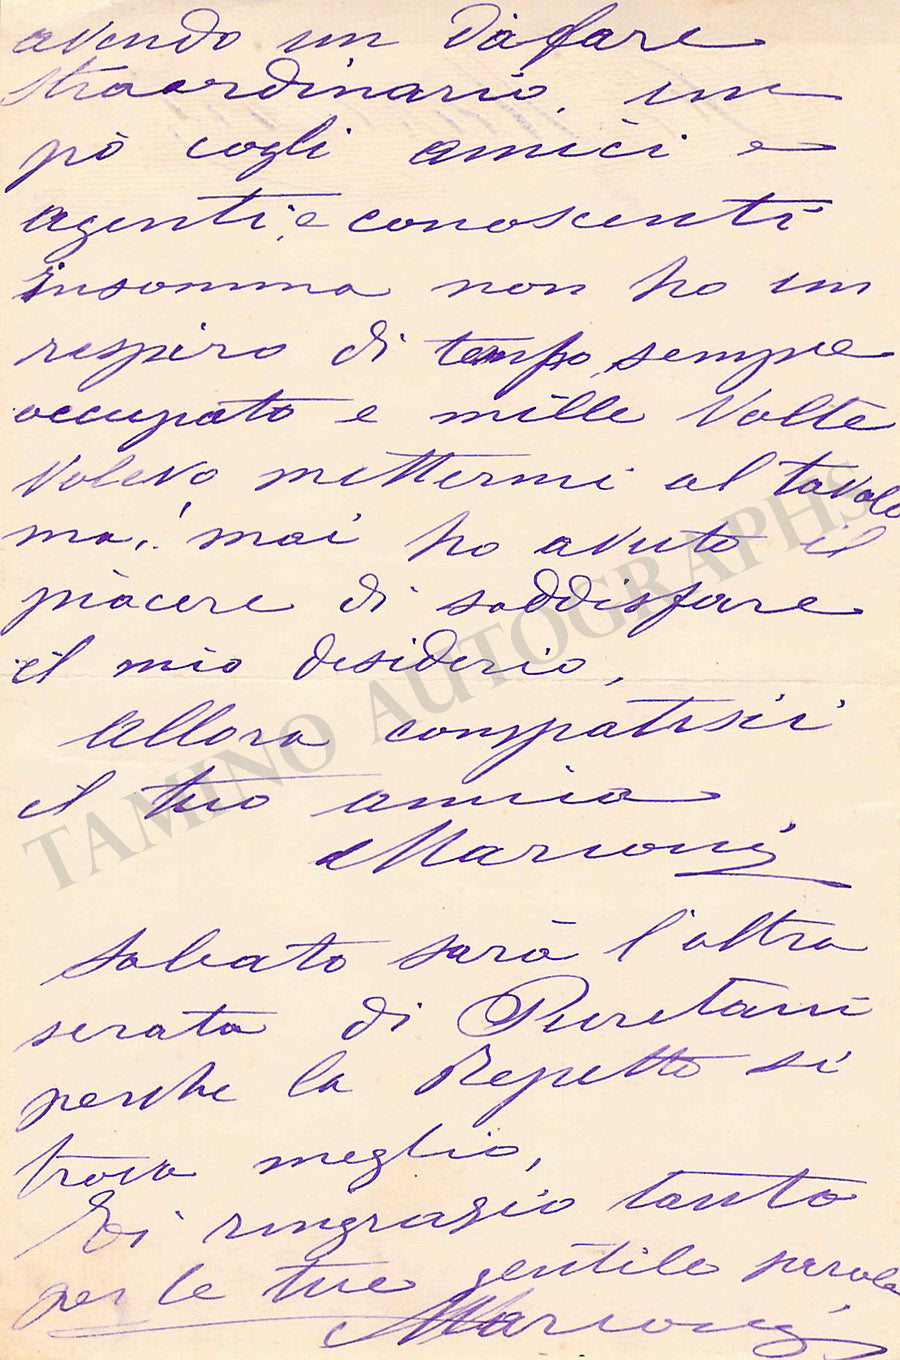 avendo un dafare
straordinario, un
pò cogli amici e
agenti, e conoscenti
insomma non ho un
respiro di tempo, sempre
occupato e mille Volte
Volevo mettermi al tavolo
ma,! mai ho avuto il
piacere di soddisfare
il mio desiderio,
Allora compatisii
il tuo amico
Marconi
Sabato sarà l'altra
serata di Puretani
perche la Repetto si
trova meglio,
Ti ringrazio tanto
per le tue gentile parole
Marconi
TAMINO AUTOGRAPHS